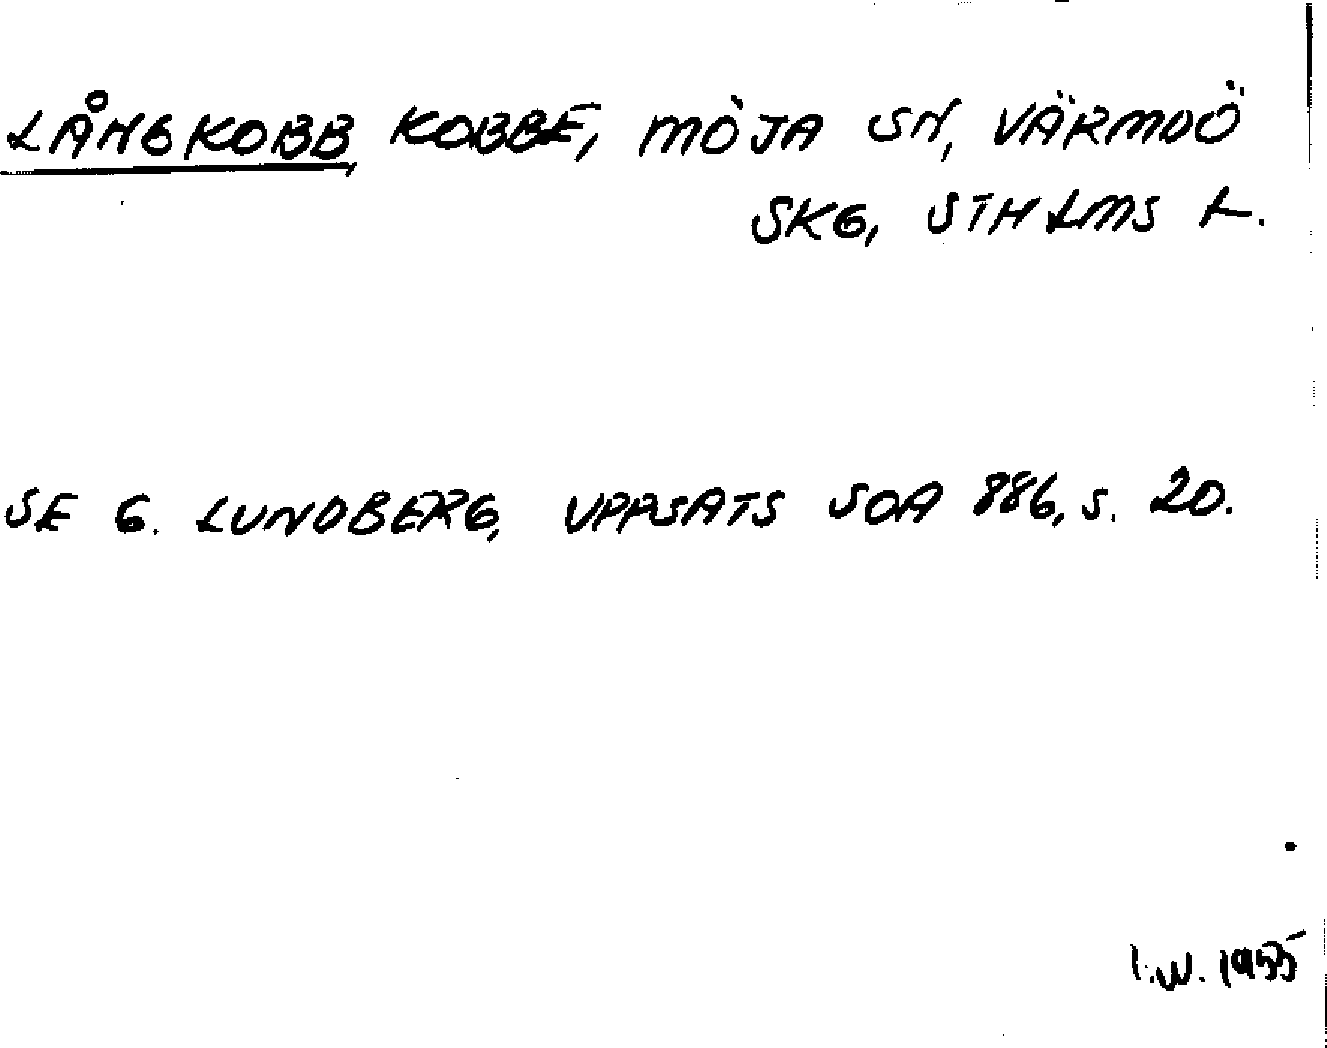 LÅNGKOBB, KOBBE, MÖJA SN, VÄRMDÖ
SKG, STHLMS L.
SE G. LUNDBERG, UPPSATS SOA 886, S. 20.
I.W. 1955